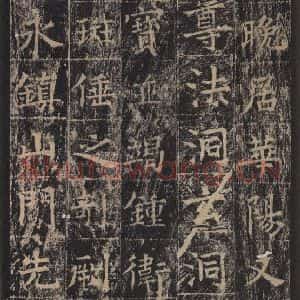 晚居華陽又
尊法洞玄洞
寶竭鍾衛
斑倕之剞劂
永鎮山門先